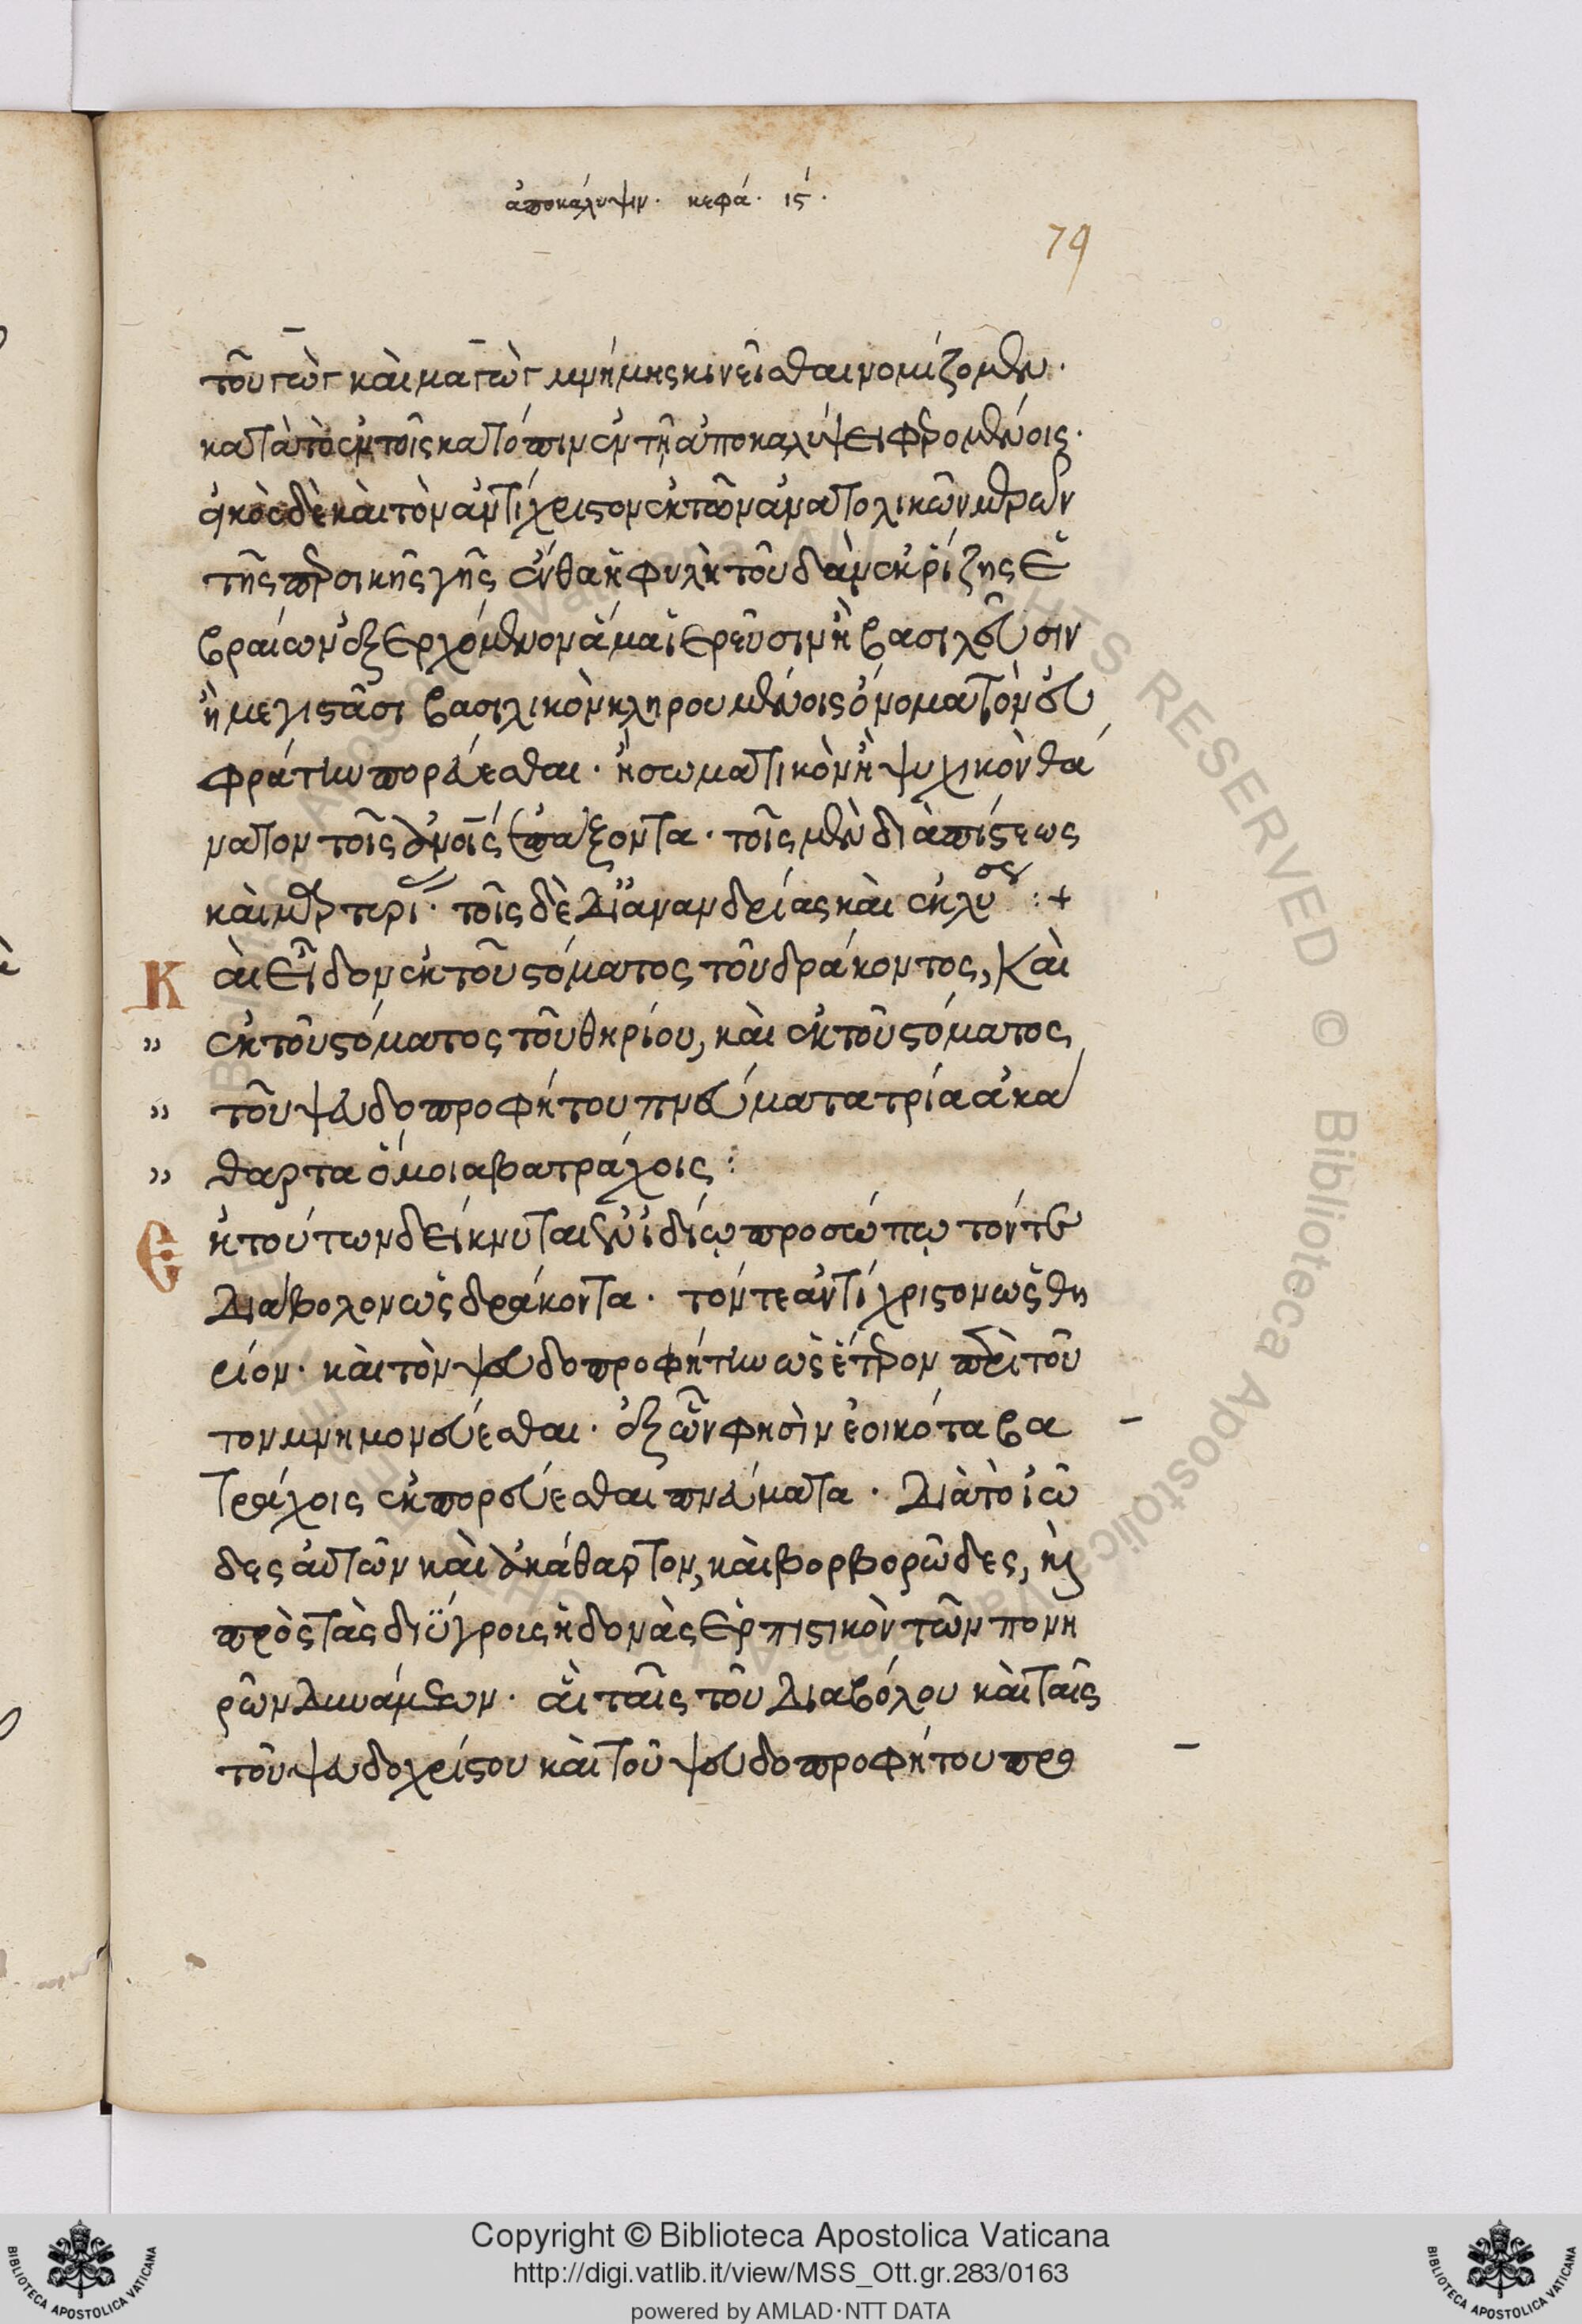 ἀποκάλυψιν. κεφά. ις΄.
79
τοῦ γὼγ καὶ μαγὼγ μνήμης κινεῖσθαι νομίζομεν.
κατὰ τὸ ἐν τοῖς κατόπιν ἐν τῇ ἀποκαλύψει φερομένοις.
εἰκὸς δὲ καὶ τὸν ἀντίχριστον ἐκ τῶν ἀνατολικῶν μερῶν
τῆς περσικῆς γῆς ἔνθα ἡ φυλὴ τοῦ δὰν ἐκ ῥίζης ἑ
βραίων ἐξερχόμενον ἅμα ἱερεῦσιν ἢ βασιλεῦσιν
ἢ μεγιστᾶσι βασιλικὸν κληρουμένοις ὄνομα τὸν εὐ
φράτην πορεύεσθαι. ἢ σωματικὸν ἢ ψυχικὸν θά
νατον τοῖς ἀνοις ἐπάξοντα. τοῖς μὲν διὰ πίστεως
καὶ καρτερί. τοῖς δὲ δι' ἀνανδρίας καὶ ἐκλυσ :+
Καὶ εἶδον ἐκ τοῦ στόματος τοῦ δράκοντος, καὶ
ἐκ τοῦ στόματος τοῦ θηρίου, καὶ ἐκ τοῦ στόματος
τοῦ ψευδοπροφήτου πνεύματα τρία ἀκά
θαρτα ὅμοια βατράχοις :
Ἐκ τούτων δείκνυται ἐν ἰδίῳ προσώπῳ τόν τε
διάβολον ὡς δράκοντα. τόν τε ἀντίχριστον ὡς θη
ρίον. καὶ τὸν ψευδοπροφήτην ὡς ἕτερον περὶ τοῦ
τον μνημονεύεσθαι. ἐξ ὧν φησὶν ἐοικότα βα
τράχοις ἐκπορεύεσθαι πνεύματα. διὰ τὸ ἰῶ
δες αὐτῶν καὶ ἀκάθαρτον, καὶ βορβορῶδες, καὶ
πρὸς τὰς διΰγροις ἡδονὰς ἑρπιστικὸν τῶν πονη
ρῶν δυνάμεων. αἳ ταῖς τοῦ διαβόλου καὶ ταῖς
τοῦ ψευδοχρίστου καὶ τοῦ ψευδοπροφήτου προ
Copyright © Biblioteca Apostolica Vaticana
http://digi.vatlib.it/view/MSS_Ott.gr.283/0163
powered by AMLAD·NTT DATA